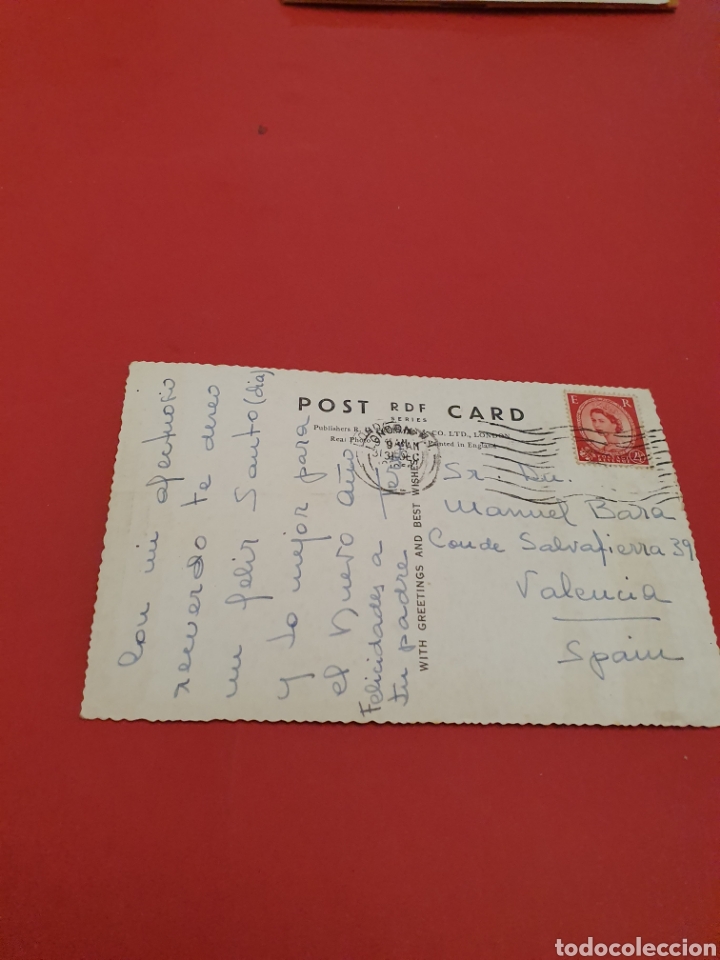 POST RDF CARD
SERIES
Publishers R. CO. LTD., LONDON
Real Photo Printed in England
WITH GREETINGS AND BEST WISHES
E R
9-AM
DEC
Con mi afectuoso
recuerdo te deseo
un feliz Santo (dia)
y lo mejor para
el Nuevo Año
Felicidades a
tu padre
Sr. Dn.
Manuel Bara
Conde Salvatierra 39
Valencia
Spain
todocoleccion